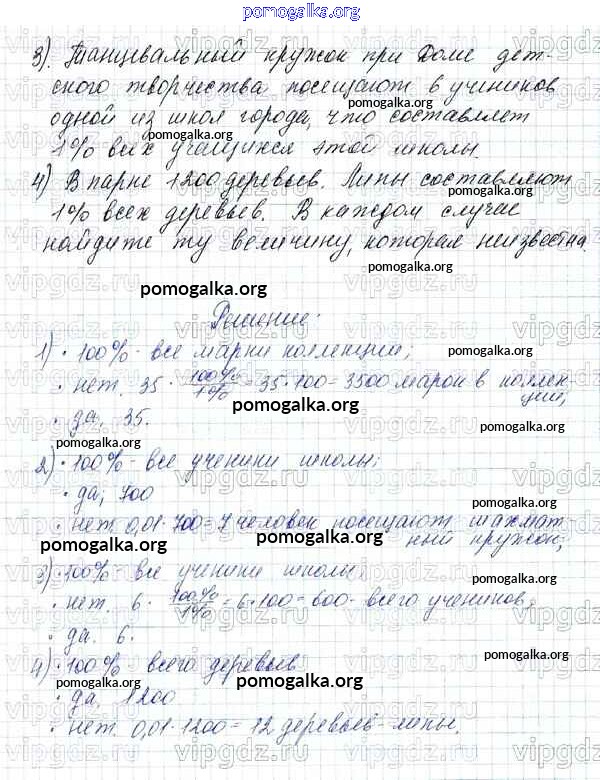 pomogalka.org
3). Танцевальный кружок при Доме дет-
ского творчества посещают 6 учеников
одной из школ города, что составляет
pomogalka.org
1% всех учащихся этой школы.
pomogalka.org
4) В парке 1200 деревьев. Липы составляют
pomogalka.org
1% всех деревьев. В каждом случае
найдите ту величину, которая неизвестна.
pomogalka.org
pomogalka.org
Решение:
1) · 100% - все марки коллекции;
pomogalka.org
· нет. 35 · 100%/1% = 35·100 = 3500 марок в коллек-
ции;
pomogalka.org
· да, 35.
pomogalka.org
2) · 100% - все ученики школы;
· да; 700
pomogalka.org
· нет. 0,01·700 = 7 человек посещают шахмат-
ный кружок;
pomogalka.org pomogalka.org
3) · 100% - все ученики школы;
pomogalka.org
· нет. 6 · 100%/1% = 6·100 = 600 - всего учеников;
· да. 6.
4) · 100% - всего деревьев
pomogalka.org
pomogalka.org pomogalka.org
· да. 1200
· нет. 0,01·1200 = 12 деревьев - липы.